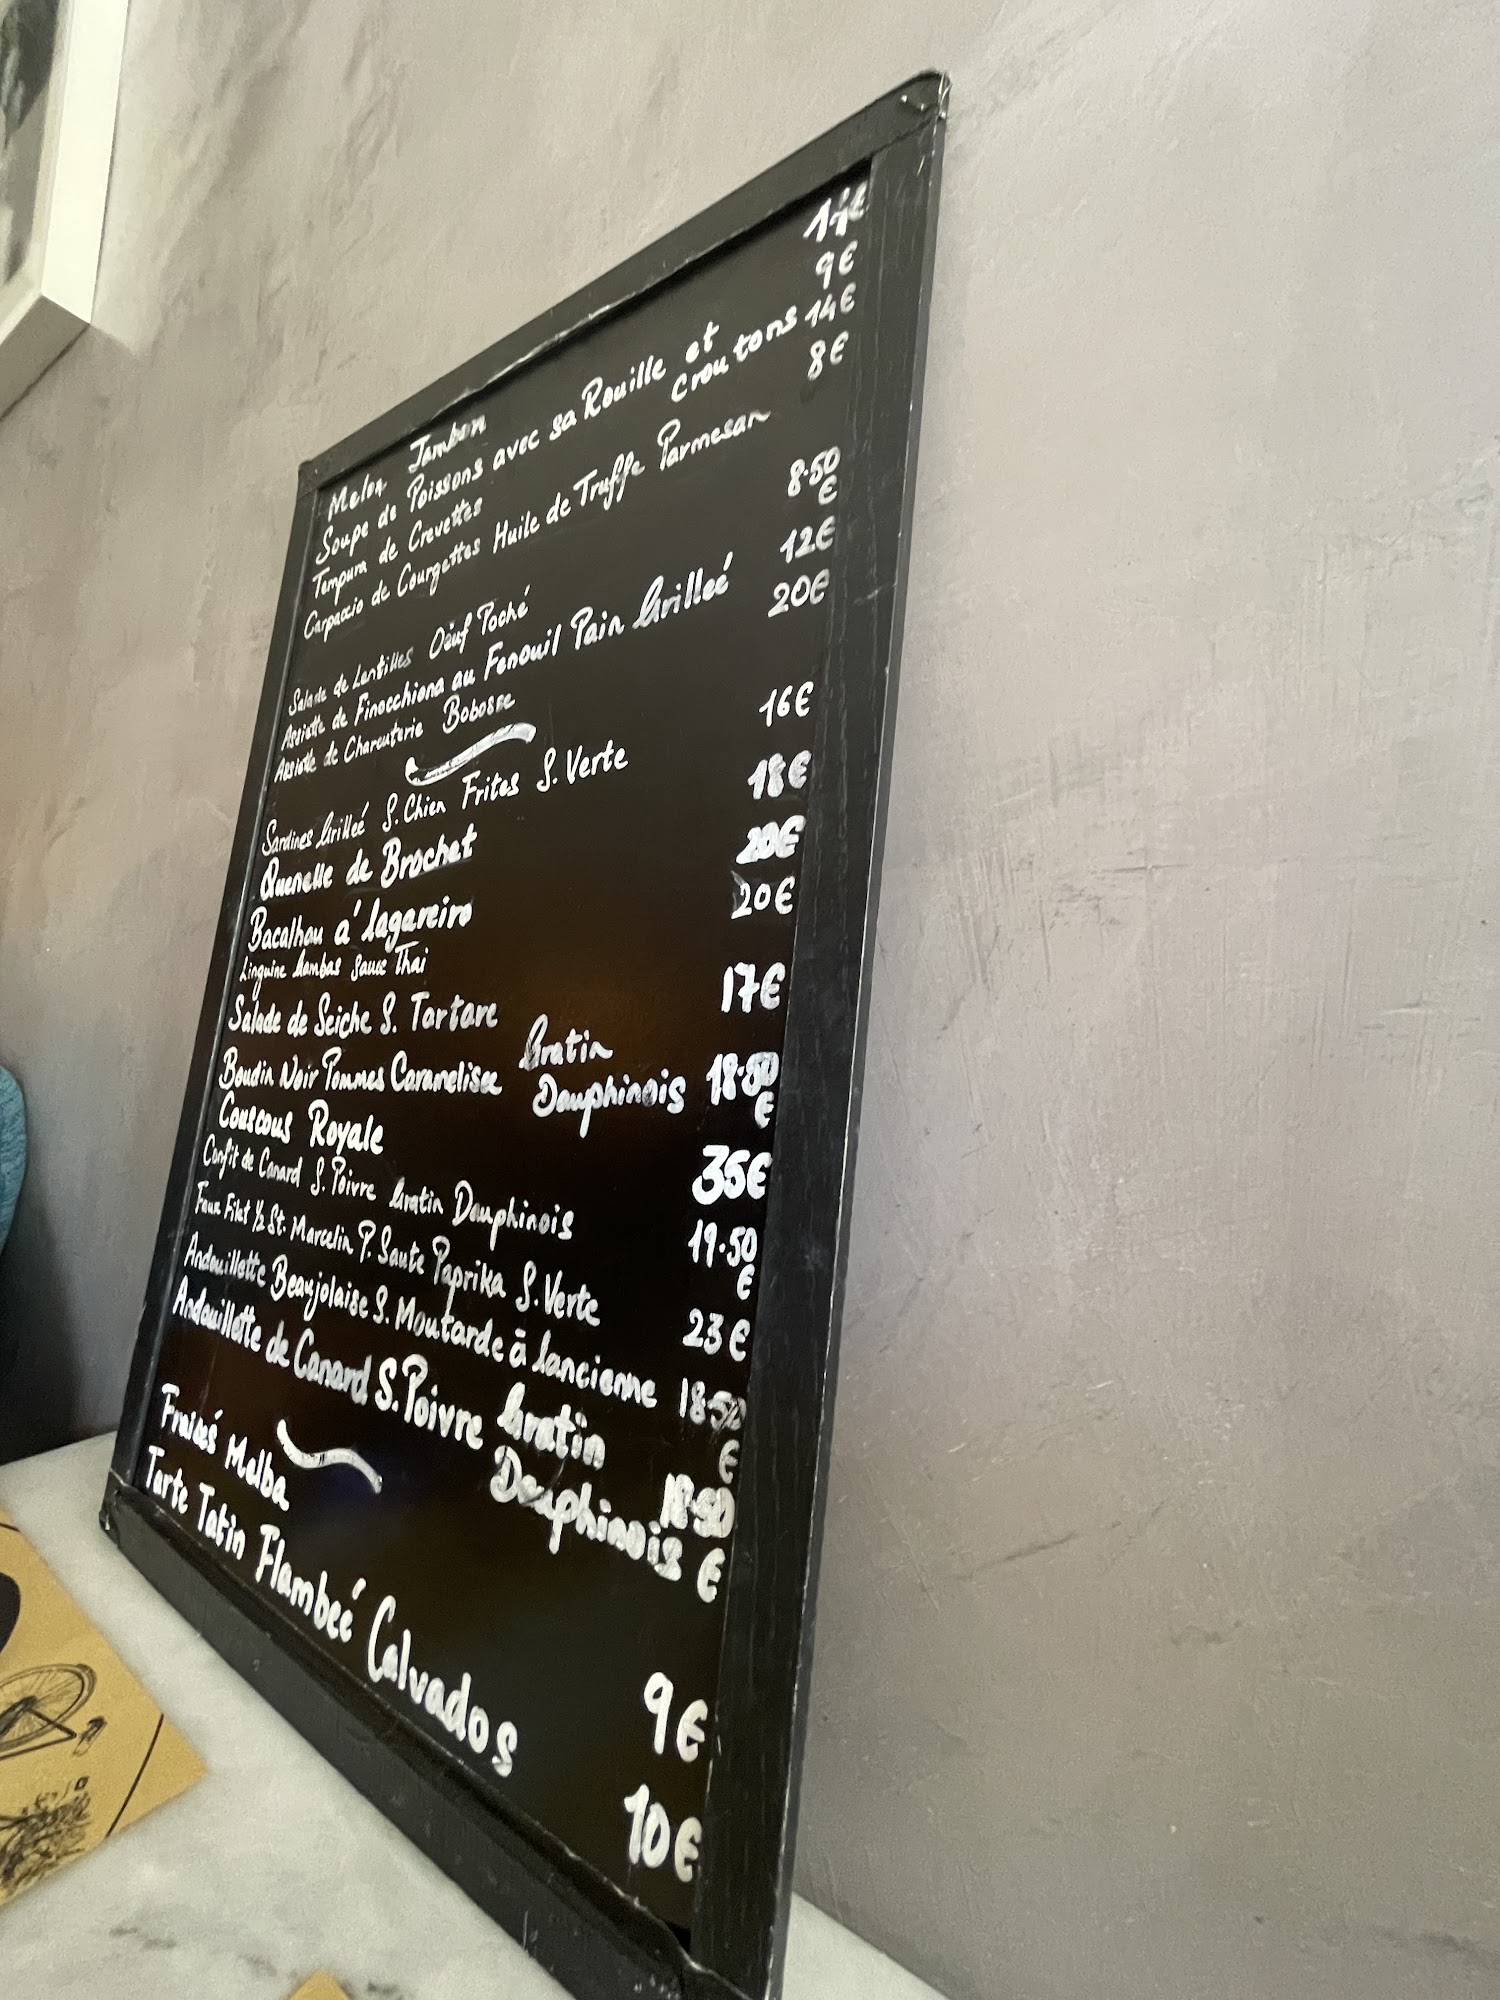 Melon Jambon
Soupe de Poissons avec sa Rouille et 9€
croutons
Tempura de Crevettes 14€
Carpaccio de Courgettes Huile de Truffe Parmesan 8€
Salade de Lentilles Oeuf Poché 8.50
€
Assiette de Finocchiona au Fenouil Pain Grilleé 12€
Assiette de Charcuterie Bobosse 20€
Sardines Grilleé S. Chien Frites S. Verte 16€
Quenelle de Brochet 18€
Bacalhau a' lagareiro 20€
Linguine Gambas Sauce Thai 20€
Salade de Seiche S. Tartare 17€
Boudin Noir Pommes Caramelisee Gratin
Dauphinois 18.50
€
Couscous Royale 35€
Confit de Canard S. Poivre Gratin Dauphinois 19.50
€
Faux Filet 1/2 St. Marcelin P. Saute Paprika S. Verte 23€
Andouillette Beaujolaise S. Moutarde à lancienne 18.50
€
Andouillette de Canard S. Poivre Gratin
Dauphinois 18.50
€
Fraiseś Melba 9€
Tarte Tatin Flambeé Calvados 10€